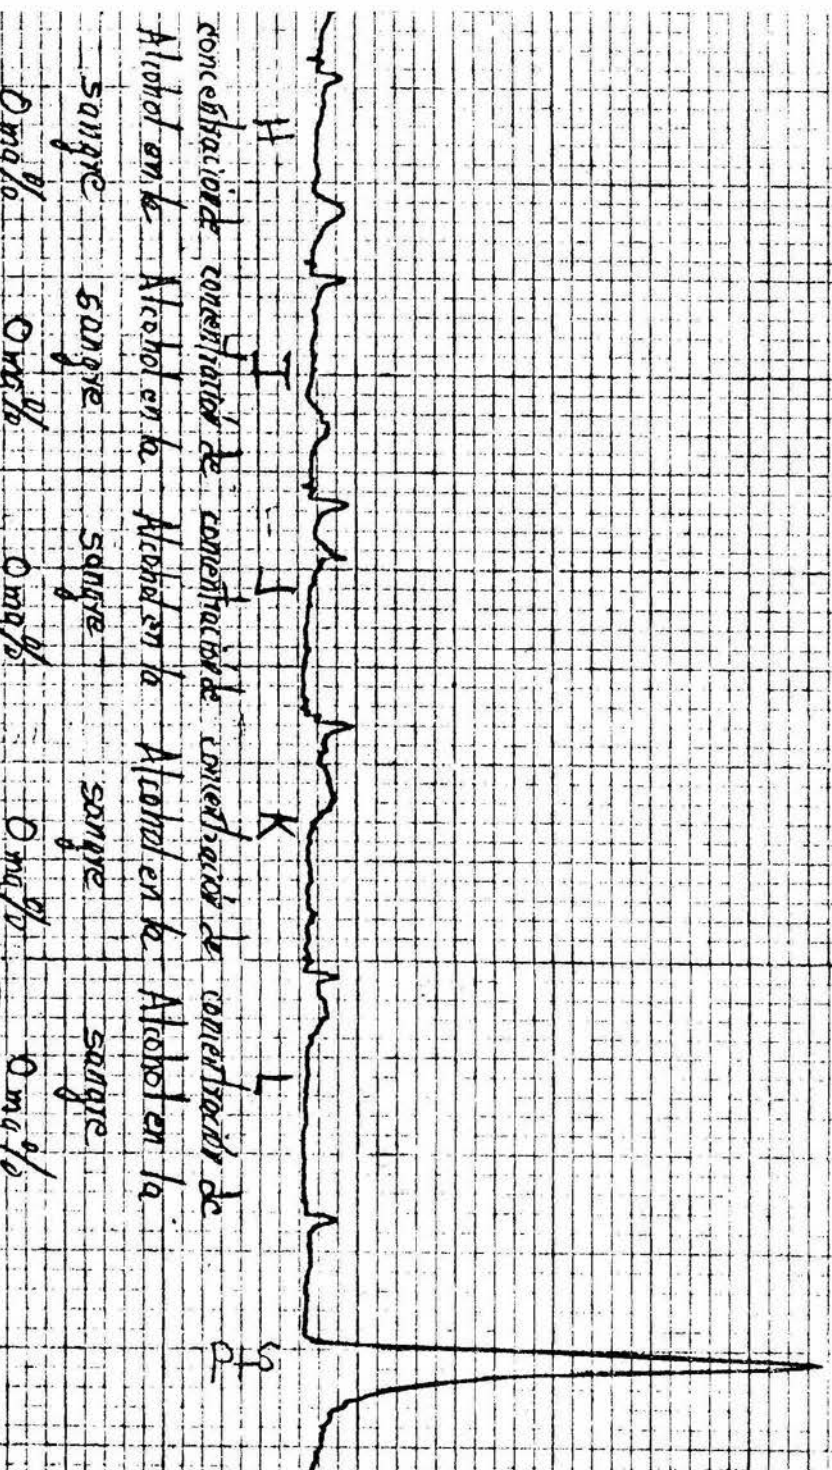 H
concentracionde
Alcohol en la
sangre
0 mg%
I
concentración de
Alcohol en la
sangre
0 mg%
J
concentración de
Alcohol en la
sangre
0 mg%
K
concentración de
Alcohol en la
sangre
0 mg%
L
concentración de
Alcohol en la
sangre
0 mg%